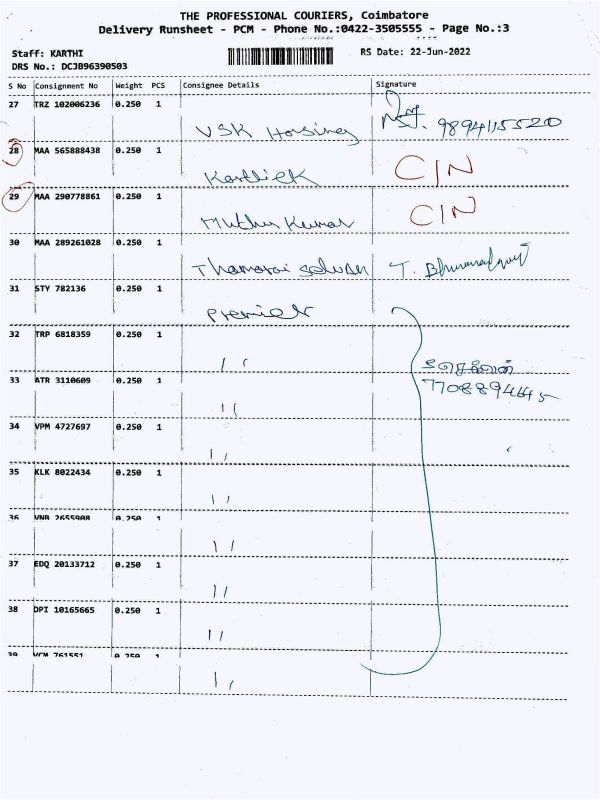 THE PROFESSIONAL COURIERS, Coimbatore
Delivery Runsheet - PCM - Phone No.:0422-3505555 - Page No.:3
Staff: KARTHI
RS Date: 22-Jun-2022
DRS No.: DCJB96390503
S No Consignment No Weight PCS Consignee Details Signature
27 TRZ 102006236 0.250 1
VSK Housing 9894115520
28 MAA 565888438 0.250 1
Karthick CIN
29 MAA 290778861 0.250 1
Muthu Kumar CIN
30 MAA 289261028 0.250 1
Thamarai Selvan T.
31 STY 782136 0.250 1
Premier
32 TRP 6818359 0.250 1
'' 
33 ATR 3110609 0.250 1
7708894645
''
34 VPM 4727697 0.250 1
''
35 KLK 8022434 0.250 1
''
36 VNB 2655908 0.250 1
''
37 EDQ 20133712 0.250 1
''
38 DPI 10165665 0.250 1
''
39 VCM 761551 0.250 1
''